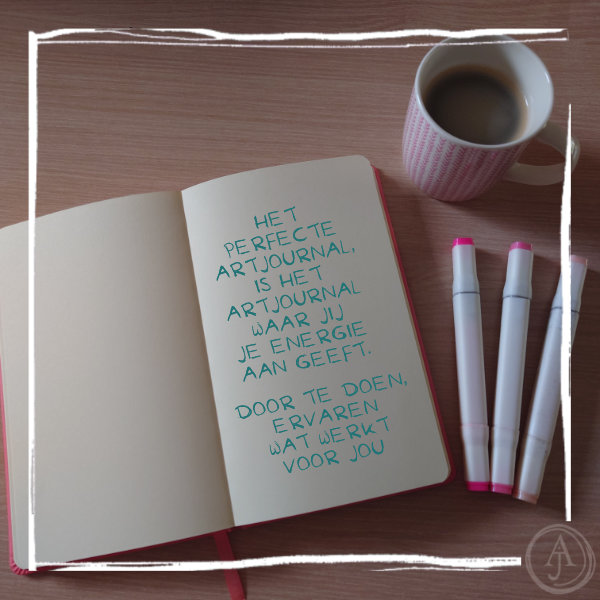 HET
PERFECTE
ARTJOURNAL,
IS HET
ARTJOURNAL
WAAR JIJ
JE ENERGIE
AAN GEEFT.
DOOR TE DOEN,
ERVAREN
WAT WERKT
VOOR JOU
AJ